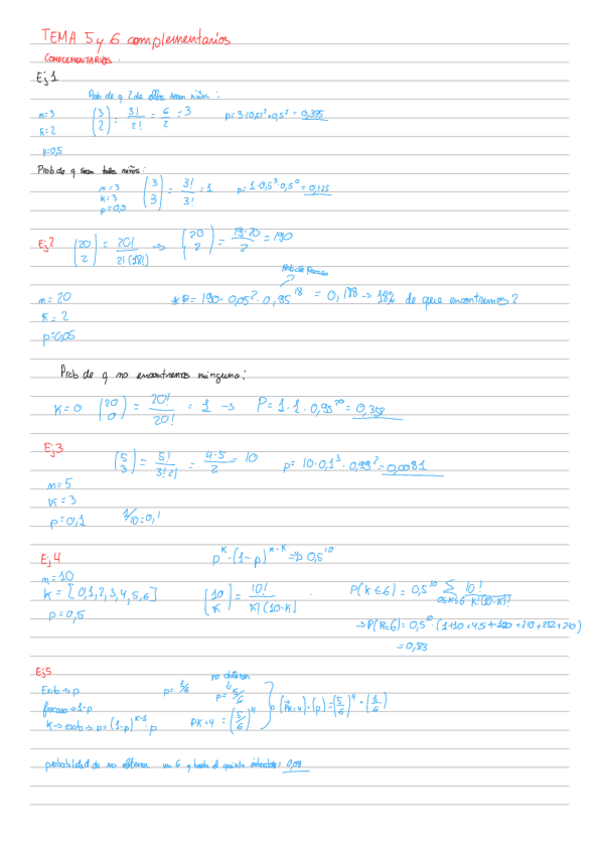 TEMA 5 y 6 complementarios
COMPLEMENTARIOS.
Ej 1
Prob de q 2 de ellos sean niños:
m=3
K=2
p=0,5
(3 2) = 3!/2! = 6/2 = 3 p=3·0,5²·0,5¹ = 0,375
Prob de q sean todos niños:
m=3
k=3
p=0,5
(3 3) = 3!/3! = 1 p=1·0,5³·0,5⁰ = 0,125
Ej 2 (20 2) = 20!/2!(18!) → (20 2) = 19·20/2 = 190
Prob de fracaso
m=20
K=2
p=0,05
*P=190·0,05²·0,95¹⁸ = 0,188 → 18% de que encontremos 2
Prob de q no encontremos ninguno:
K=0 (20 0) = 20!/20! = 1 → P=1·1·0,95²⁰=0,358
Ej 3
m=5
K=3
p=0,1 1/10=0,1
(5 3) = 5!/3!2! = 4·5/2 = 10 p=10·0,1³·0,99²=0,0081
Ej 4 p^K·(1-p)^(n-K) => 0,5¹⁰
m=10
K=[0,1,2,3,4,5,6]
p=0,5
(10 K) = 10!/K!(10-K)! P(K≤6)=0,5¹⁰ Σ 0≤K≤6 10!/K!(10-K)!
→P(K=6)=0,5¹⁰·(1+10+45+120+210+252+210)
=0,83
Ej 5
Exito → p p=1/6
no obtener
p=5/6
fracaso→1-p
K→exito→p=(1-p)^(K-1)·p PK=4=(5/6)⁴
p(PK=4)·(p)=(5/6)⁴·(1/6)
probabilidad de no obtener un 6 q hasta el quinto intento= 0,08